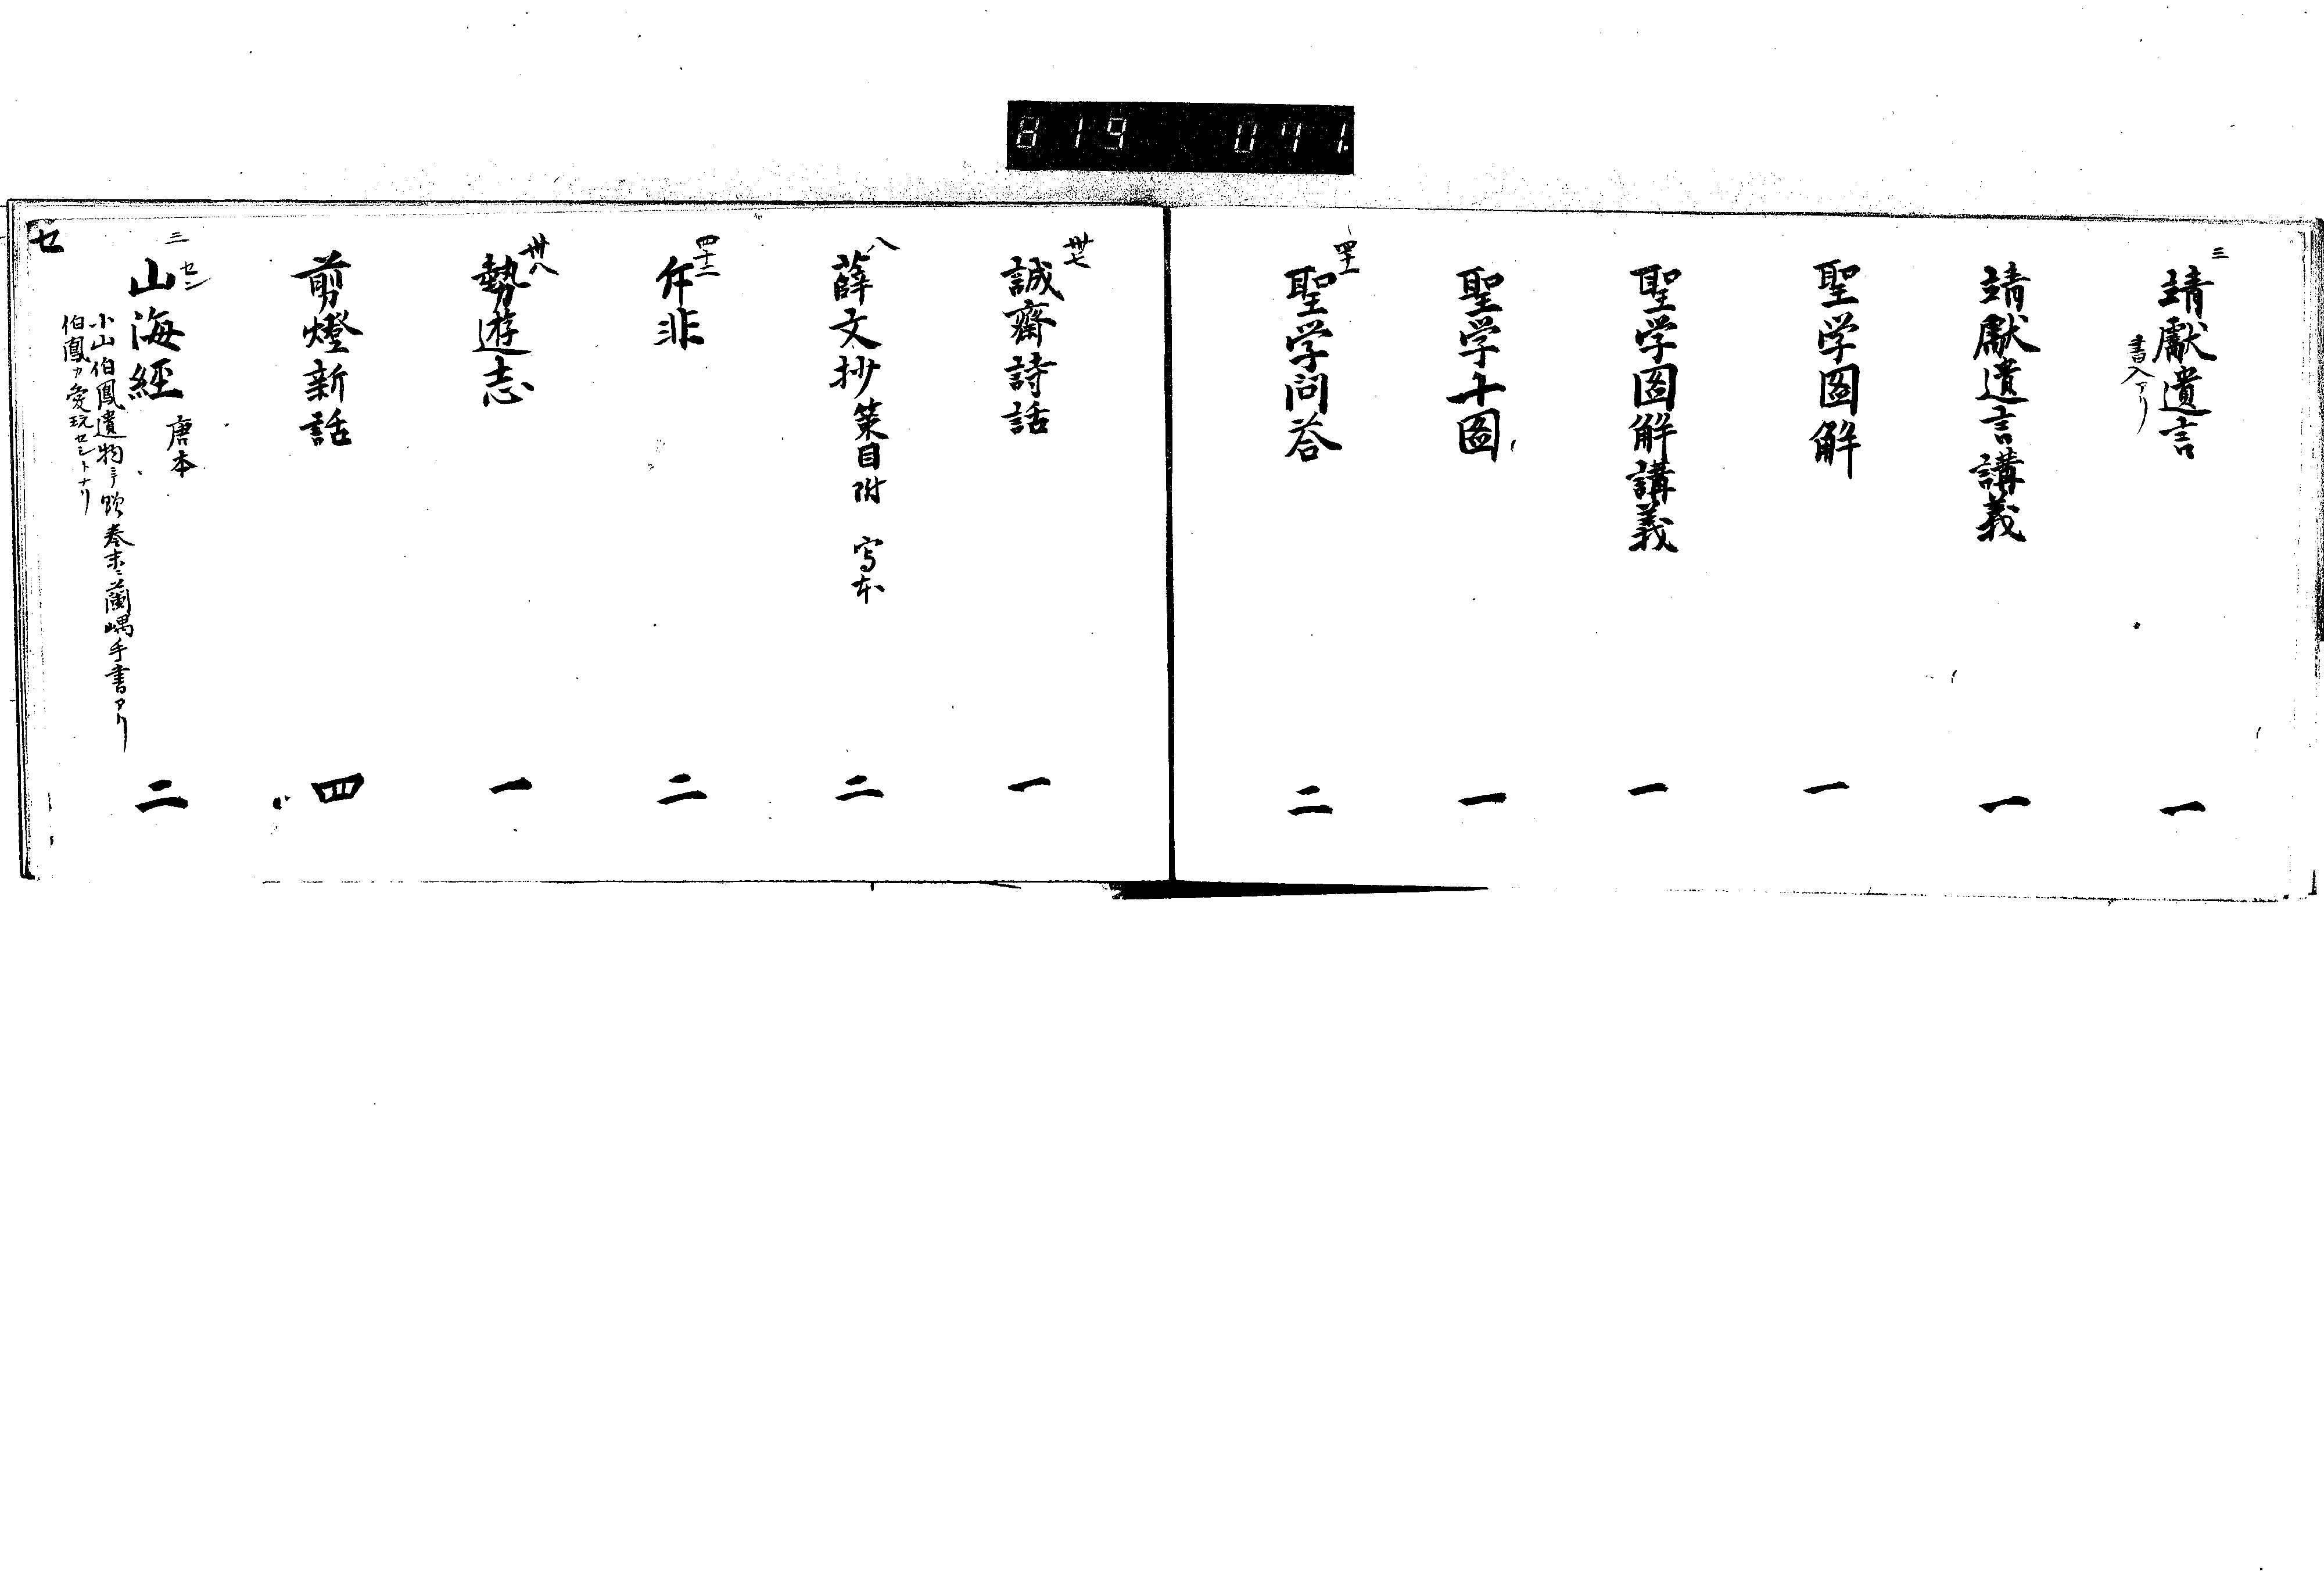 819 071.
三
靖獻遺言 一
書入アリ
靖獻遺言講義 一
聖学圖解 一
聖学圖解講義 一
聖学十圖 一
四十一
聖学問荅 二
卅七
誠齋詩話 一
八
薛文抄 策目附 写本 二
四十二
斥非 二
卅八
勢遊志 一
剪燈新話 四
三
セン
山海經 唐本 二
小山伯鳳遺物ニテ 巻末ニ蘭嵎手書アリ
伯鳳カ愛玩セシトナリ
セ